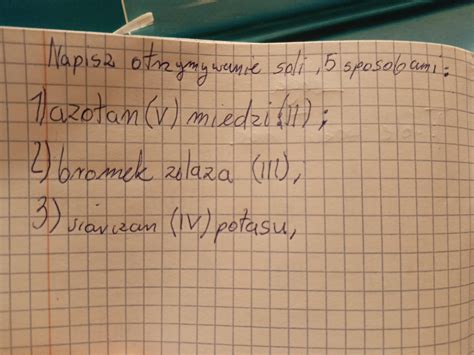 Napisz otrzymywanie soli, 5 sposobami:
1) azotan (V) miedzi (II);
2) bromek żelaza (III),
3) siarczan (IV) potasu,